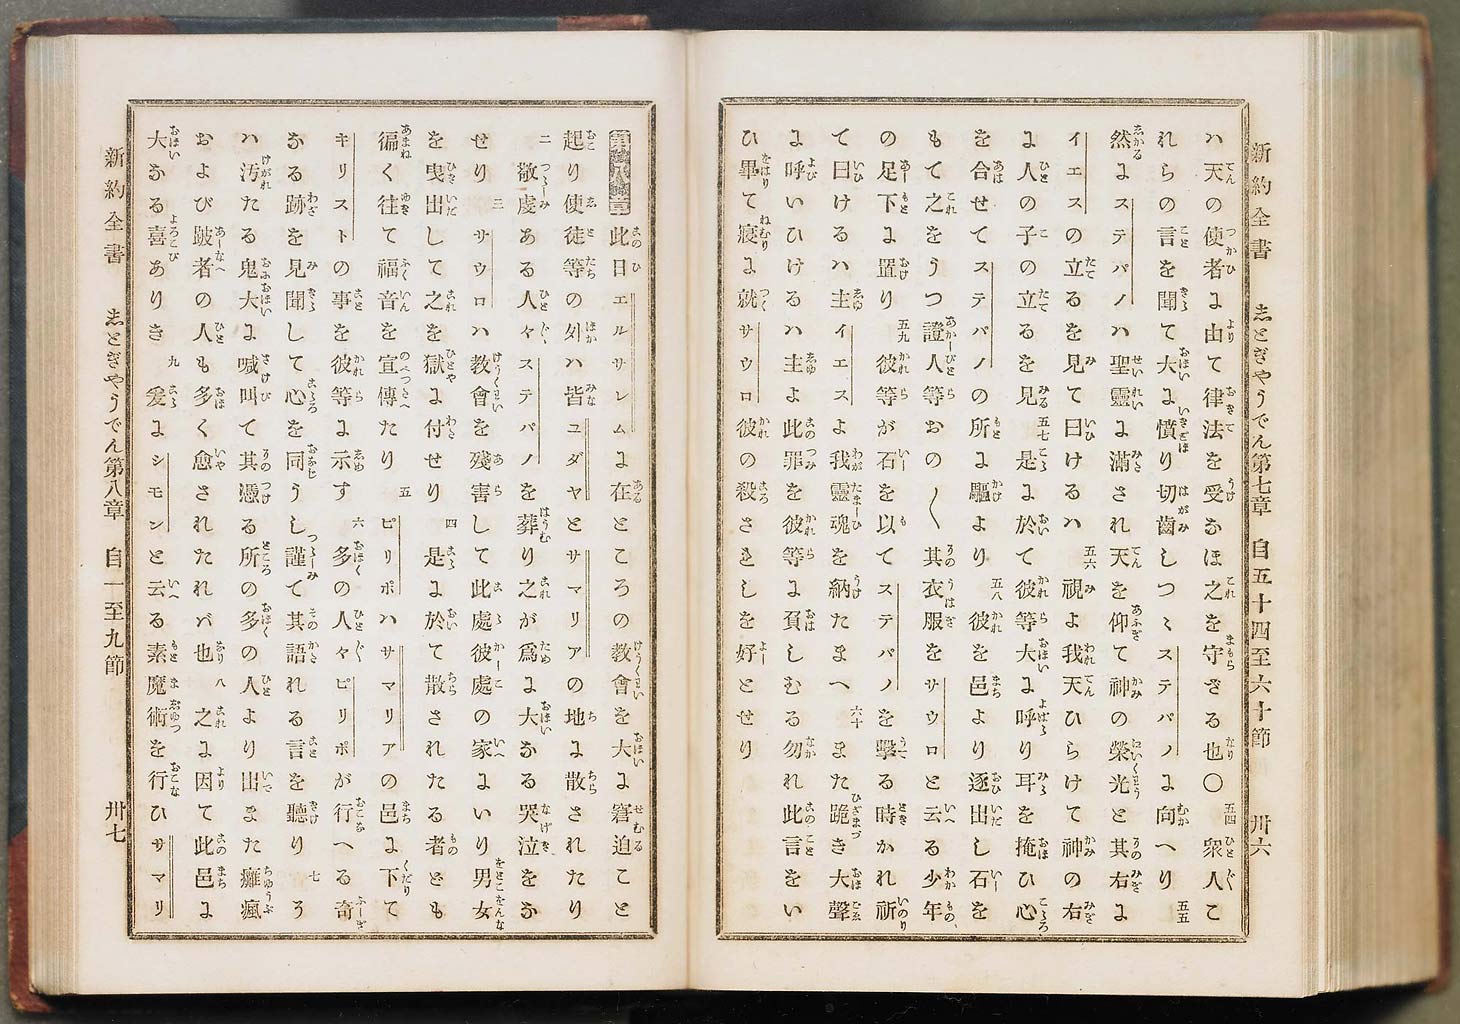 新約全書　志とぎやうでん第七章　自五十四至六十節　卅六
ハ天の使者よ由て律法を受なほ之を守ざる也〇五四衆人こ
れらの言を聞て大よ憤り切齒しつゝステパノよ向へり五五
然るよステパノハ聖靈よ滿され天を仰て神の榮光と其右よ
イエスの立るを見て曰けるハ五六視よ我天ひらけて神の右
よ人の子の立るを見五七是よ於て彼等大よ呼り耳を掩ひ心
を合せてステパノの所よ驅より五八彼を邑より逐出し石を
もて之をうつ證人等おの〳〵其衣服をサウロと云る少年
の足下よ置り五九彼等が石を以てステパノを擊る時かれ祈
て曰けるハ主イエスよ我靈魂を納たまへ六十また跪き大聲
よ呼いひけるハ主よ此罪を彼等よ負しむる勿れ此言をい
ひ畢て寢よ就サウロ彼の殺さるゝを好とせり
第八章 此日エルサレムよ在ところの教會を大よ窘迫こと
起り使徒等の外ハ皆ユダヤとサマリアの地よ散されたり
二敬虔ある人々ステパノを葬り之が爲よ大なる哭泣をな
せり三サウロハ教會を殘害して此處彼處の家よいり男女
を曳出して之を獄よ付せり四是よ於て散されたる者ども
徧く往て福音を宣傳たり五ピリポハサマリアの邑よ下て
キリストの事を彼等よ示す六多の人々ピリポが行へる奇
なる跡を見聞して心を同うし謹て其語れる言を聽り七
ハ汚たる鬼大よ喊叫て其憑る所の多の人より出また癱瘋
および跛者の人も多く愈されたれバ也八之よ因て此邑よ
大なる喜ありき九爰よシモンと云る素魔術を行ひサマリ
新約全書　志とぎやうでん第八章　自一至九節　卅七